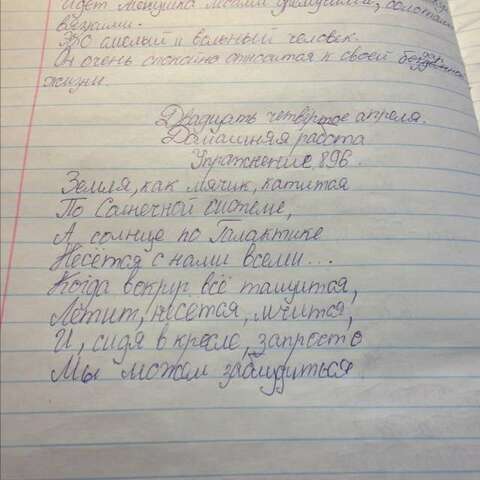 Идёт Мокушка лесами дремучими, болотами
вязкими.
Это смелый и вольный человек.
Он очень спокойно относится к своей бездарной
жизни.
Двадцать четвёртое апреля.
Домашняя работа
Упражнение 896.
Земля, как мячик, катится
По Солнечной системе,
А солнце по Галактике
Несётся с нами всеми...
Когда вокруг всё толчется,
Летит, несётся, мчится,
И, сидя в кресле, запросто
Мы можем заблудиться